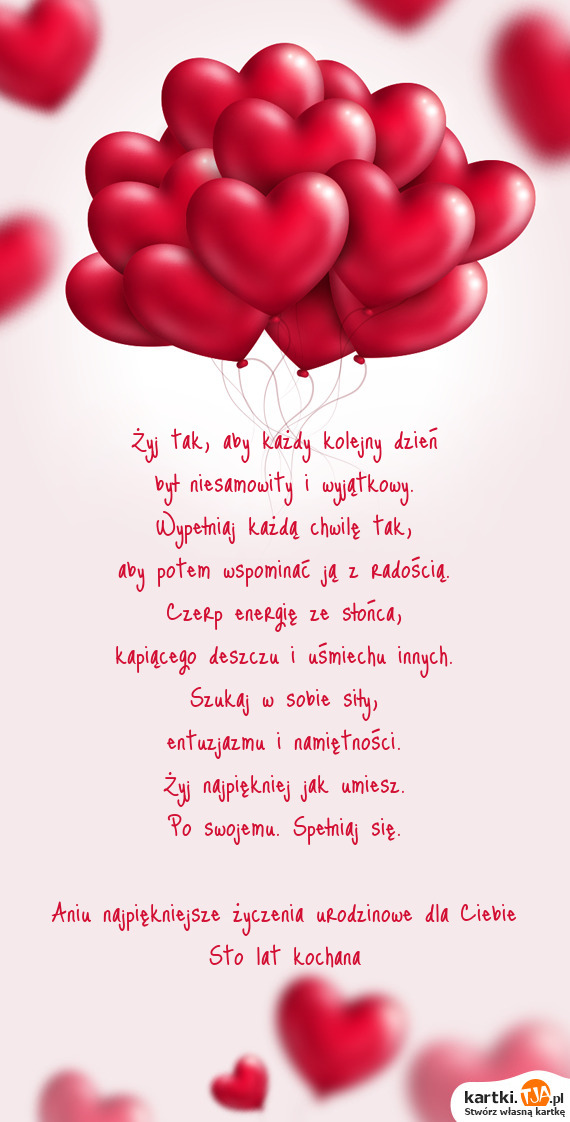 Żyj tak, aby każdy kolejny dzień
był niesamowity i wyjątkowy.
Wypełniaj każdą chwilę tak,
aby potem wspominać ją z radością.
Czerp energię ze słońca,
kapiącego deszczu i uśmiechu innych.
Szukaj w sobie siły,
entuzjazmu i namiętności.
Żyj najpiękniej jak umiesz.
Po swojemu. Spełniaj się.
Aniu najpiękniejsze życzenia urodzinowe dla Ciebie
Sto lat kochana
kartki.TJA.pl
Stwórz własną kartkę